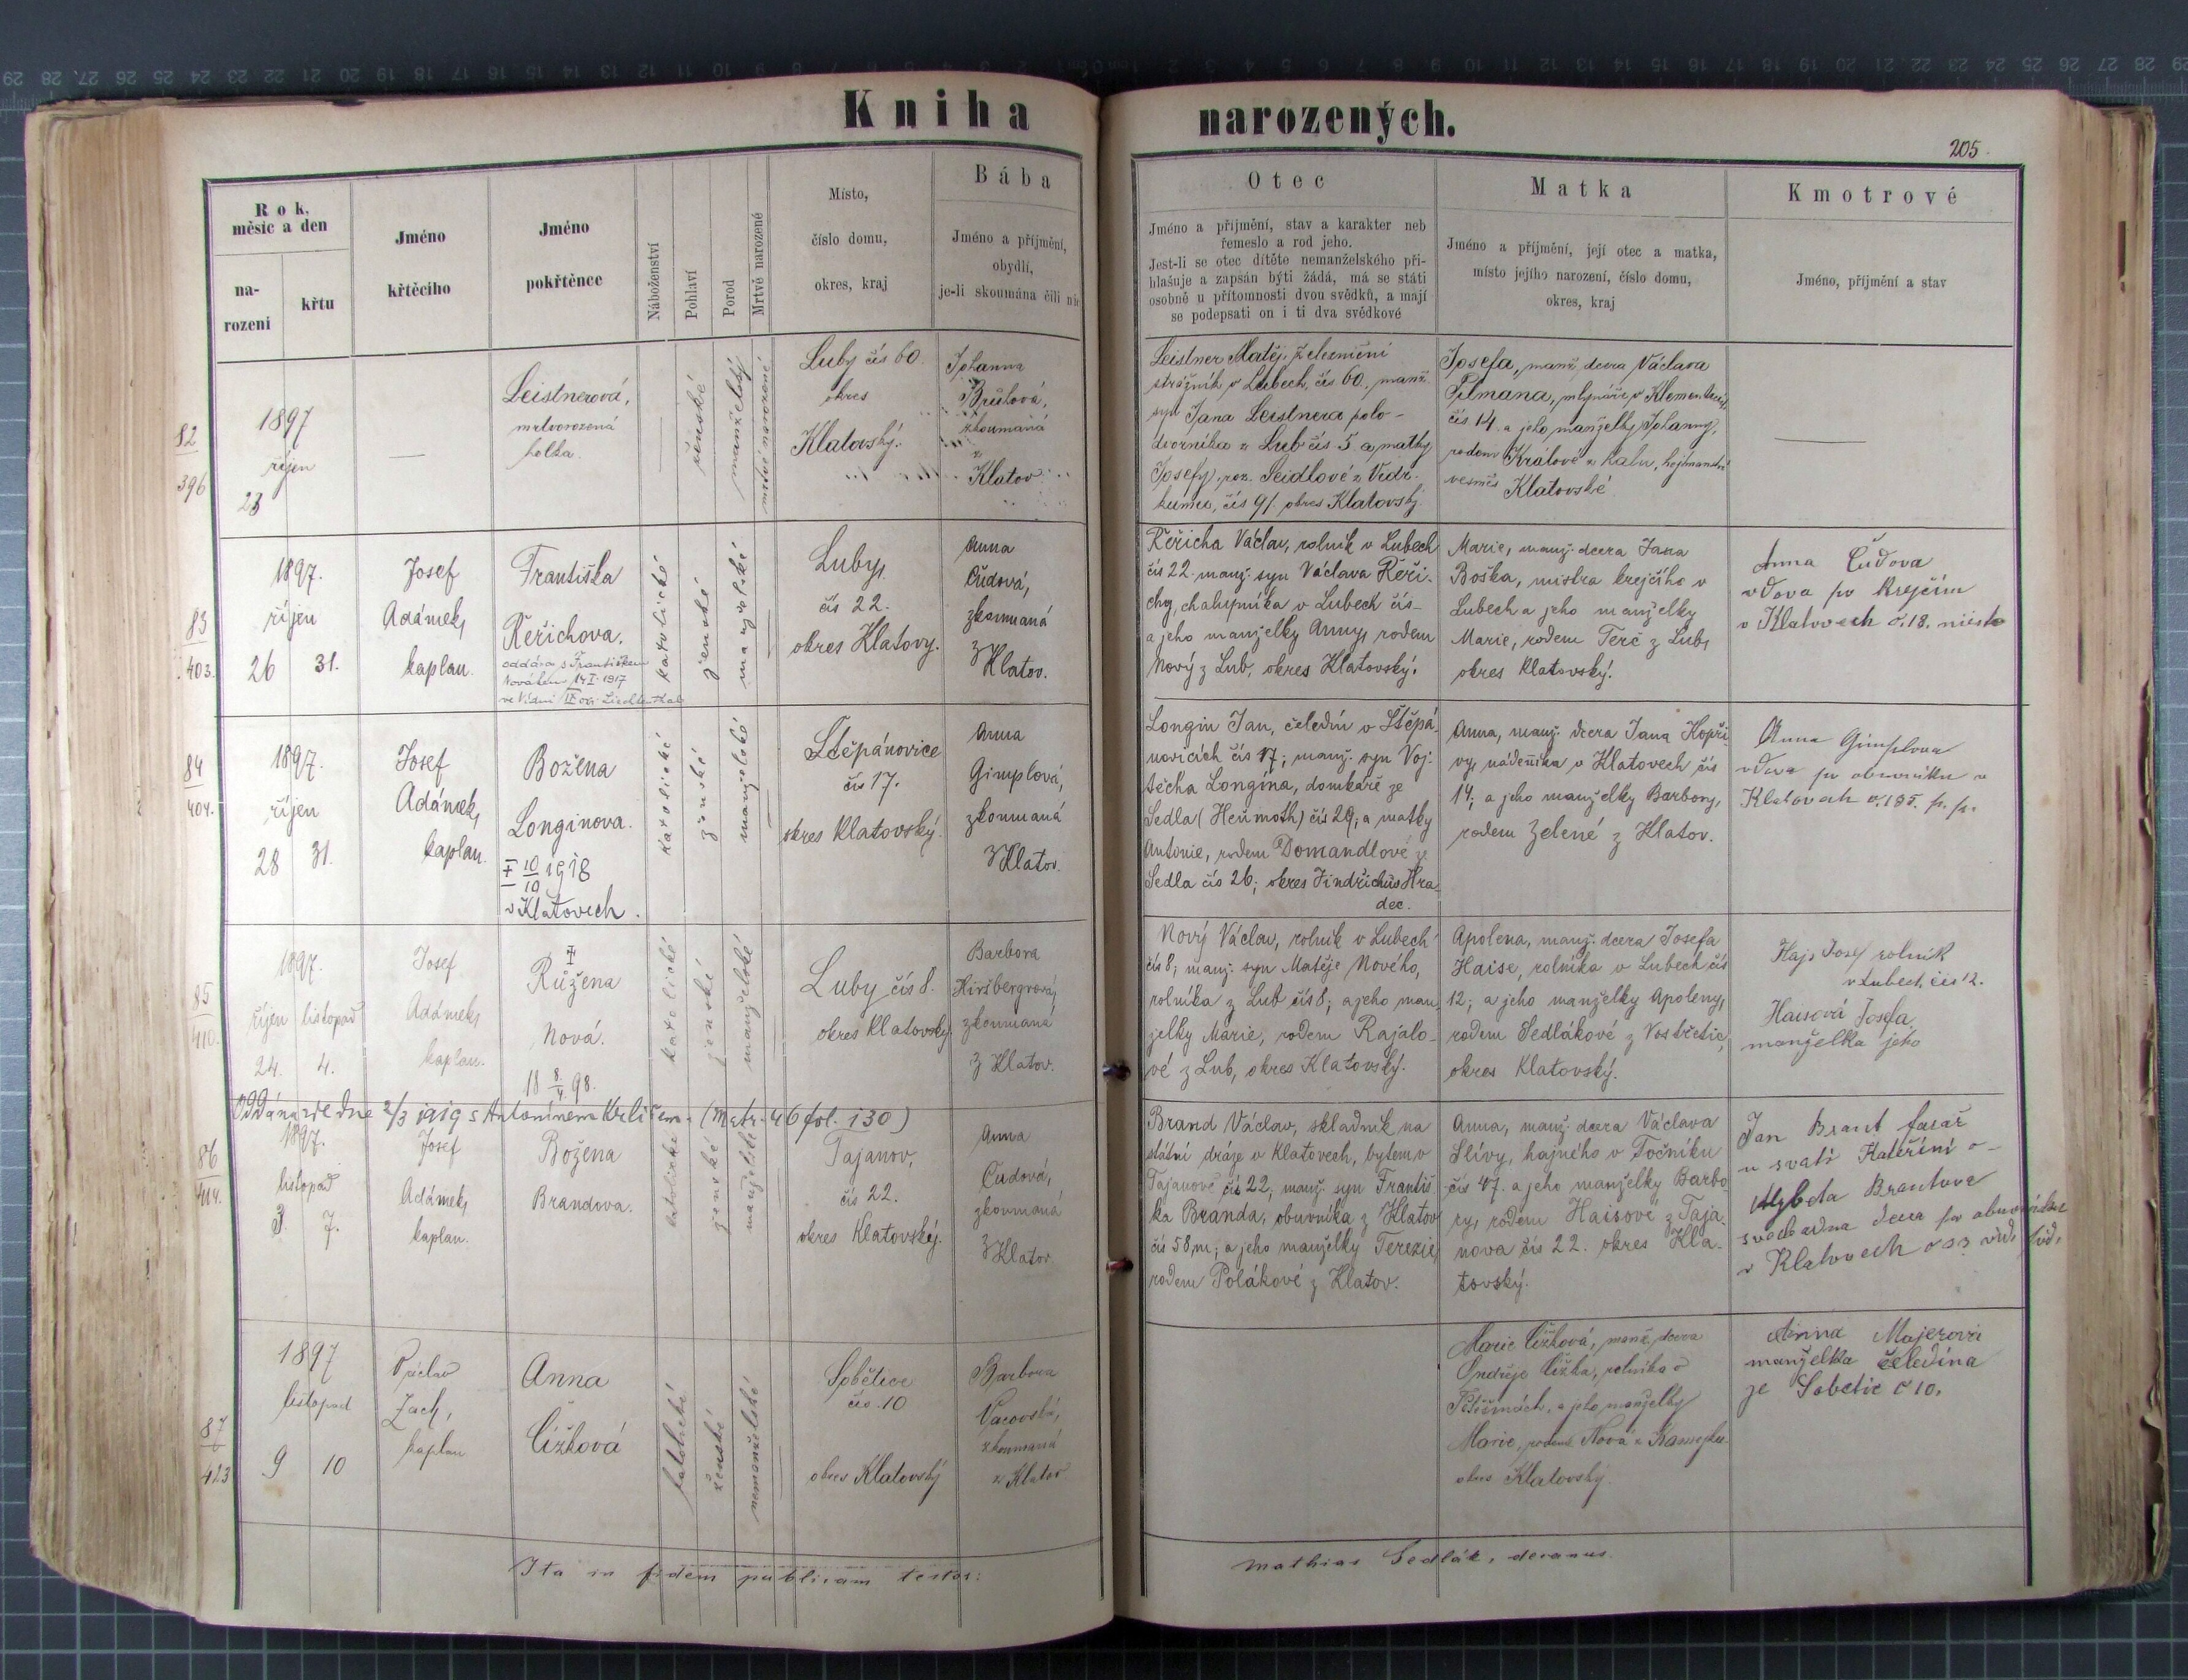 Kniha narozených.
205
Rok, měsíc a den
na-
rození
křtu
Jméno
křtěcího
Jméno
pokřtěnce
Náboženství
Pohlaví
Porod
Mrtvě narozené
Místo,
číslo domu,
okres, kraj
Bába
Jméno a příjmení,
obydlí,
je-li skoumána čili nic
Otec
Jméno a příjmení, stav a karakter neb
řemeslo a rod jeho.
Jest-li se otec dítěte nemanželského při-
hlašuje a zapsán býti žádá, má se státi
osobně u přítomnosti dvou svědků, a mají
se podepsati on i ti dva svědkové
Matka
Jméno a příjmení, její otec a matka,
místo jejího narození, číslo domu,
okres, kraj
Kmotrové
Jméno, příjmení a stav
82
396
1897
říjen
23
Leistnerová,
mrtvorozená
holka.
ženské
manželský
mrtvě narozené
Luby čís 60.
okres
Klatovský.
Johanna
zkoumaná
z
Klatov
Leistner Matěj, železniční
strážník v Lubech, čís 60, manž.
syn Jana Leistnera polo-
dvorníka z Lub čís 5 a matky
Josefy, roz. Seidlové z
čís 91. okres Klatovský
Josefa, manž. dcera Václava
mlynáře v
čís 14. a jeho manželky Johanny,
rodem Králové z
vesměs Klatovské
83
403.
1897.
říjen
26 31.
Josef
Adámek,
kaplan.
Františka
Řeřichova.
oddána s Františkem
Novákem 14 I 1917
ve Vídni IX
katolické
ženské
manželské
Luby,
čís 22.
okres Klatovy.
Anna
Čudová,
zkoumaná
z
Klatov.
Řeřicha Václav, rolník v Lubech
čís 22. manž. syn Václava Řeři-
chy, chalupníka v Lubech čís-
a jeho manželky Anny, rodem
Nový z Lub, okres Klatovský.
Marie, manž. dcera Jana
Boška, mistra krejčího v
Lubech a jeho manželky
Marie, rodem Terč z Lub,
okres Klatovský.
Anna Čudova
vdova po krejčím
v Klatovech č. 18. město
84
404.
1897.
říjen
28 31.
Josef
Adámek,
kaplan.
Božena
Longinova.
‡ 10/10 1918
v Klatovech.
katolické
ženské
manželské
Štěpánovice
čís 17.
okres Klatovský.
Anna
Gimplová,
zkoumaná
z Klatov.
Longin Jan, čeledín v Štěpá-
novicích čís 17; manž. syn Voj-
těcha Longina, domkáře ze
Sedla čís 29; a matky
Antonie, rodem Domandlové ze
Sedla čís 26; okres Jindřichův Hra-
dec.
Anna, manž. dcera Jana Kopři-
vy, nádeníka v Klatovech čís
14; a jeho manželky Barbory,
rodem Zelené z Klatov.
Anna Gimplova
vdova po obuvníku v
Klatovech č. 185. p. p.
85
410.
1897.
říjen listopad
24. 4.
Josef
Adámek,
kaplan.
‡
Růžena
Nová.
18 8/4 98.
katolické
ženské
manželské
Luby čís 8.
okres Klatovský
Barbora
Hiršbergrová,
zkoumaná
z Klatov.
Nový Václav, rolník v Lubech
čís 8; manž. syn Matěje Nového,
rolníka z Lub čís 8; a jeho man-
želky Marie, rodem Rajalo-
vé z Lub, okres Klatovský.
Apolena, manž. dcera Josefa
Haise, rolníka v Lubech čís
12; a jeho manželky Apoleny,
rodem Sedlákové z Vostřetic,
okres Klatovský.
Hajs Josef rolník
v Lubech, čís 12.
Haisová Josefa,
manželka jeho
Oddána zde dne 2/3 1919 s Antonínem (Matr. 46 fol. 130)
86
414.
1897.
listopad
3. 7.
Josef
Adámek,
kaplan.
Božena
Brandova.
katolické
ženské
manželské
Tajanov,
čís 22.
okres Klatovský.
Anna
Čudová,
zkoumaná
z
Klatov
Brand Václav, skladník na
státní dráze v Klatovech, bytem v
Tajanově čís 22; manž. syn Františ-
ka Branda, obuvníka z Klatov
čís 58, m; a jeho manželky Terezie,
rodem Polákové z Klatov.
Anna, manž. dcera Václava
Slívy, hajného v Točníku
čís 47. a jeho manželky Barbo
ry, rodem Haisové z Taja-
nova čís 22. okres Kla-
tovský.
Jan Brant farář
u svaté Kateřiny
Brantova
svobodna dcera po obuvníku
v Klatovech
87
423
1897
listopad
9 10
Václav
Zach,
kaplan
Anna
Čížková
katolické
ženské
nemanželské
Sobětice
čís. 10
okres Klatovský
Barbora
Vacovská,
zkoumaná
z Klatov
Marie Čížková, manž. dcera
Ondřeje Čížka, rolníka v
a jeho manželky
Marie, rodem Nová z
okres Klatovský.
Anna Majerová
manželka čeledína
ze Sobětic č 10.
Ita in fidem publicam testor:
Mathias Sedlák, decanus.